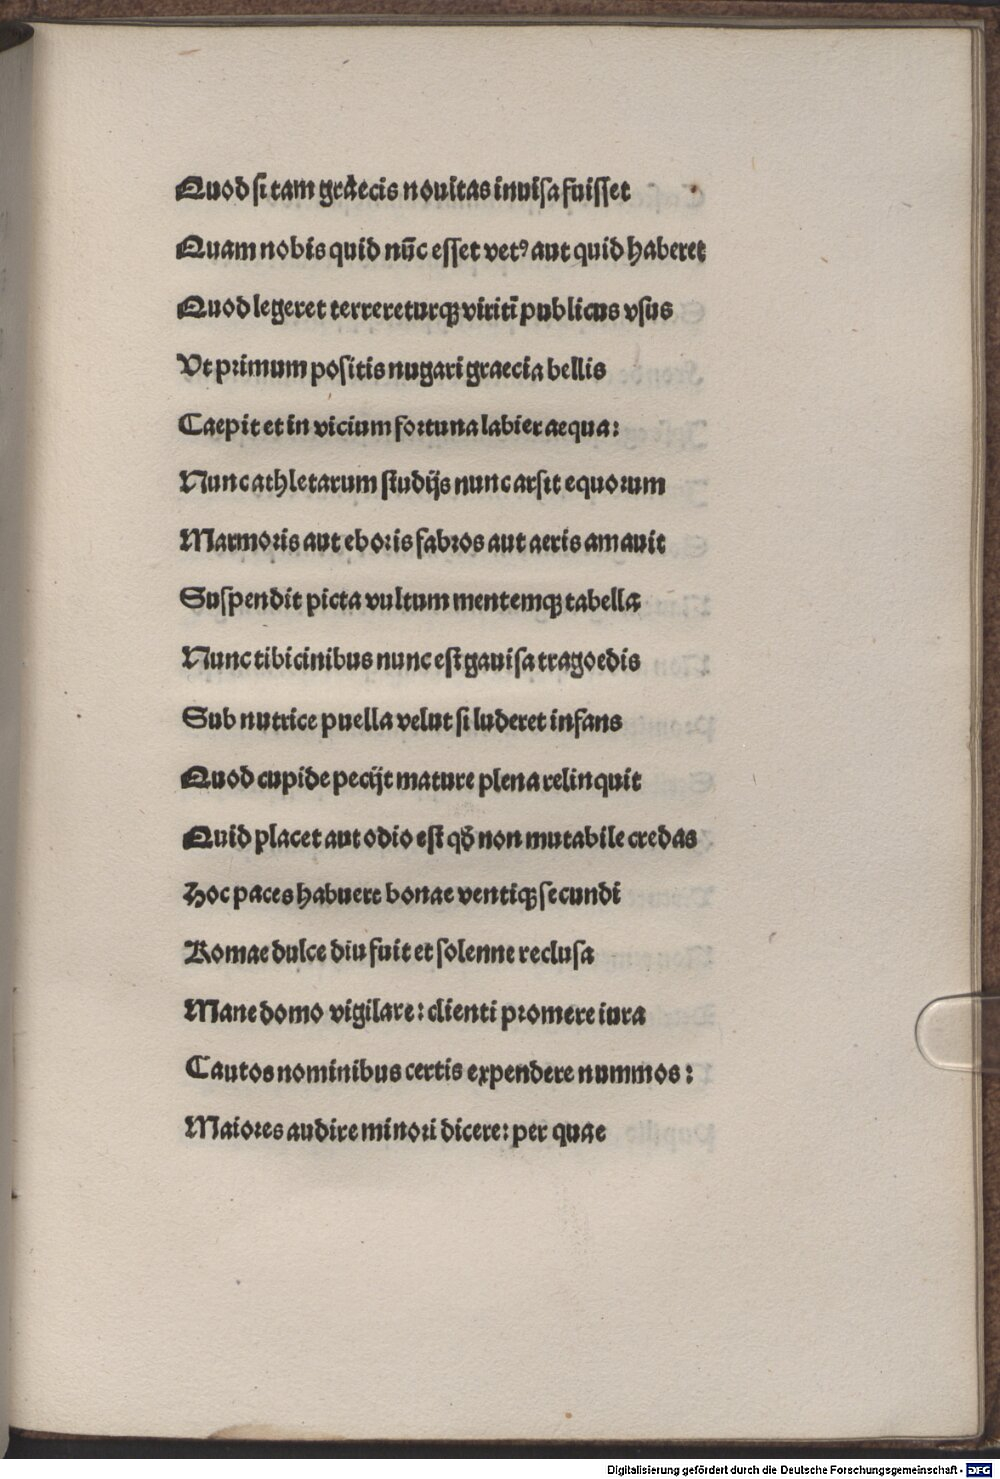 Quod si tam graecis nouitas inuisa fuisset
Quam nobis quid nūc esset vetꝰ aut quid haberet
Quod legeret terrereturqꝫ viritī publicus vsus
Vt primum positis nugari graecia bellis
Caepit et in vicium fortuna labier aequa:
Nunc athletarum studijs nunc arsit equorum
Marmoris aut eboris fabros aut aeris amauit
Suspendit picta vultum mentemqꝫ tabella
Nunc tibicinibus nunc est gauisa tragoedis
Sub nutrice puella velut si luderet infans
Quod cupide pecijt mature plena relinquit
Quid placet aut odio est qđ non mutabile credas
Hoc paces habuere bonae ventiqꝫ secundi
Romae dulce diu fuit et solenne reclusa
Mane domo vigilare: clienti promere iura
Cautos nominibus certis expendere nummos:
Maiores audire minori dicere: per quae
Digitalisierung gefördert durch die Deutsche Forschungsgemeinschaft - DFG